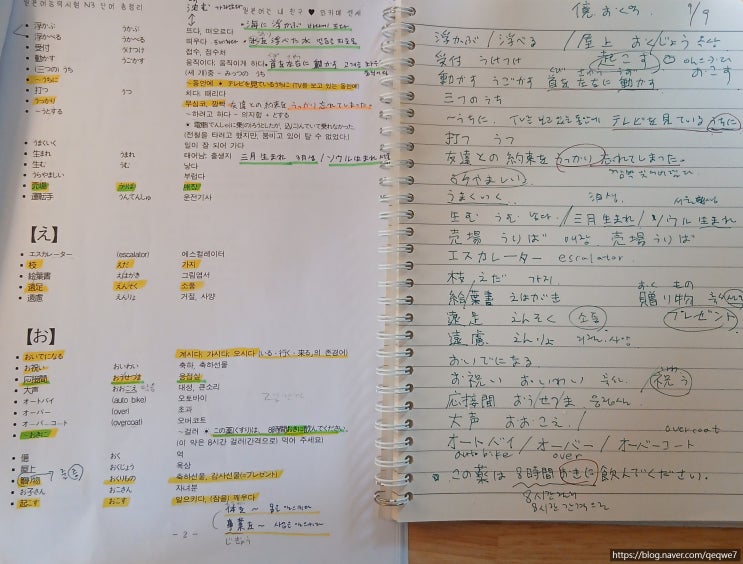 일본어능력시험 N3 단어 총정리
浮かぶ うかぶ 뜨다, 떠오르다 海に浮かぶ
浮かべる うかべる 띄우다
受付 うけつけ 접수, 접수처
動かす うごかす 움직이다, 움직이게 하다 首を左右に動かす
(三つの) うち (세 개)중 - みっつの うち
~うちに ~동안에 ★ テレビを見ているうちに (TV를 보고 있는 동안에)
打つ うつ 치다, 때리다
うっかり 무심코, 깜빡 友達との約束をうっかり忘れてしまった。
~うとする ~하려고 하다 - 의지형 + とする
うまくいく 일이 잘 되어 가다
生まれ うまれ 태어남, 출생지 三月生まれ 3월생 / ソウル生まれ
生む うむ 낳다
うらやましい 부럽다
売場 うりば 매장
運転手 うんてんしゅ 운전기사
【え】
エスカレーター (escalator) 에스컬레이터
枝 えだ 가지
絵葉書 えはがき 그림엽서
遠足 えんそく 소풍
遠慮 えんりょ 거절, 사양
【お】
おいでになる 계시다, 가시다, 오시다 (いる・行く・来る의 존경어)
お祝い おいわい 축하, 축하선물
応接間 おうせつま 응접실
大声 おおごえ 대성, 큰소리
オートバイ (auto bike) 오토바이
オーバー (over) 초과
オーバーコート (overcoat) 오버코트
~おきに ~걸러 ★ この薬(くすり)は、8時間おきに飲んでください。
(이 약은 8시간 걸러(간격으로) 먹어 주세요)
億 おく 억
屋上 おくじょう 옥상
贈り物 おくりもの 축하선물, 감사선물(=プレゼント)
お子さん おこさん 자녀분
起こす おこす 일으키다, (잠을) 깨우다
体を~
事業を~
じぎょう
- 2 -
億 おく 억
9/9
浮かぶ / 浮べる / 屋上 おくじょう 옥상
受付 うけつけ 起こす
おこす
動かす うごかす 首を左右に動かす
三つのうち
~うちに. テレビを見ているうちに
打つ うつ
友達との約束をうっかり忘れてしまった。
うらやましい
うまくいく
生む うむ 낳다 / 三月生まれ / ソウル生まれ
売場 うりば 매장 売場 うりば
エスカレーター escalator.
枝 / えだ 가지
絵葉書 えはがき 贈り物
遠足 えんそく 소풍 プレゼント
遠慮 えんりょ 거절, 사양
おいでになる
お祝い おいわい 祝う
応接間 おうせつま 응접실
大声 おおごえ / overcoat
オートバイ / オーバー / オーバーコート
auto bike over
この薬は 8時間おきに飲んでください。
8시간 간격으로
https://blog.naver.com/qeqwe7